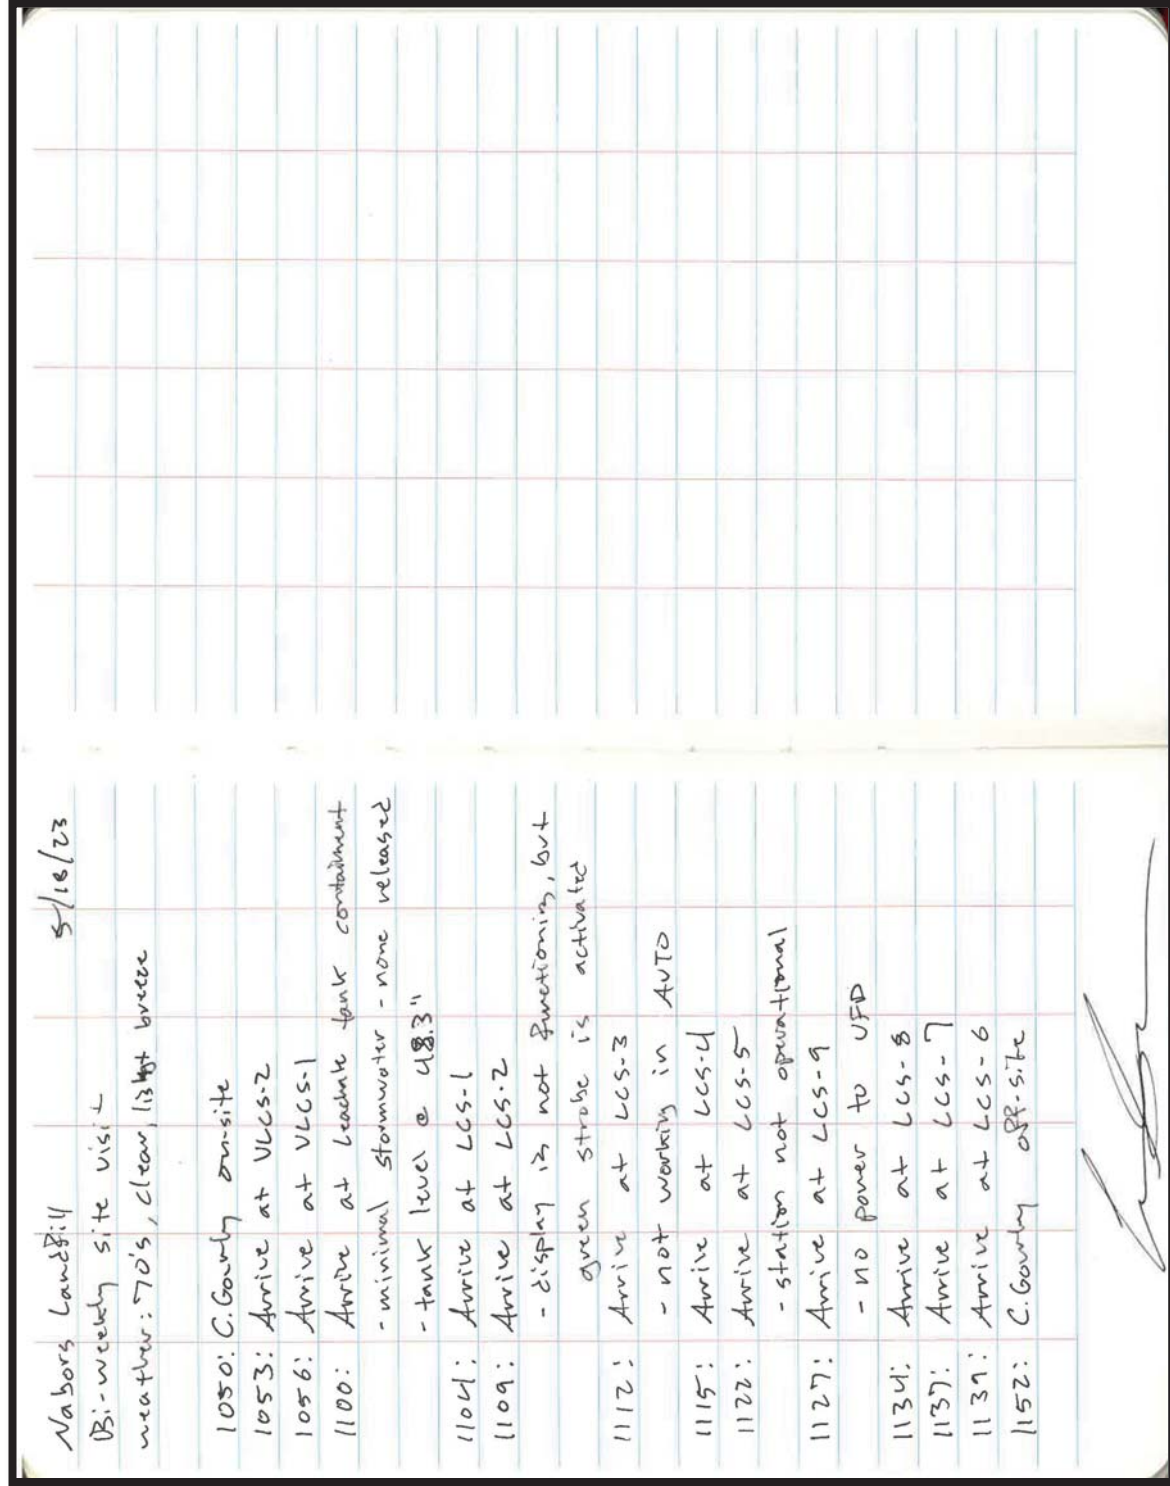 Nabors Landfill 5/18/23
Bi-weekly site visit
weather: 70's, clear, light breeze
1050: C. Gourly on-site
1053: Arrive at VLCS-2
1056: Arrive at VLCS-1
1100: Arrive at Leachate tank containment
- minimal stormwater - none released
- tank level @ 48.3"
1104: Arrive at LCS-1
1109: Arrive at LCS-2
- display is not functioning, but
green strobe is activated
1112: Arrive at LCS-3
- not working in AUTO
1115: Arrive at LCS-4
1122: Arrive at LCS-5
- station not operational
1127: Arrive at LCS-9
- no power to VFD
1134: Arrive at LCS-8
1137: Arrive at LCS-7
1139: Arrive at LCS-6
1152: C. Gourly off-site